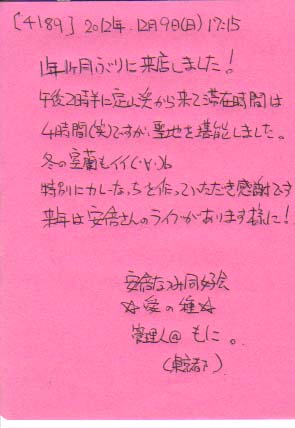 [4189] 2012年.12月9日(日) 17:15
1年1ヶ月ぶりに来店しました!
午後2時半に定山渓から来て滞在時間は
4時間(笑)ですが、聖地を堪能しました。
冬の室蘭もイイ(・∀・)b
特別にカレーなっちを作っていただき感謝です
来年は安倍さんのライブがあります様に!
安倍なつみ同好会
☆愛の種☆
管理人@もに。
(東京都下)